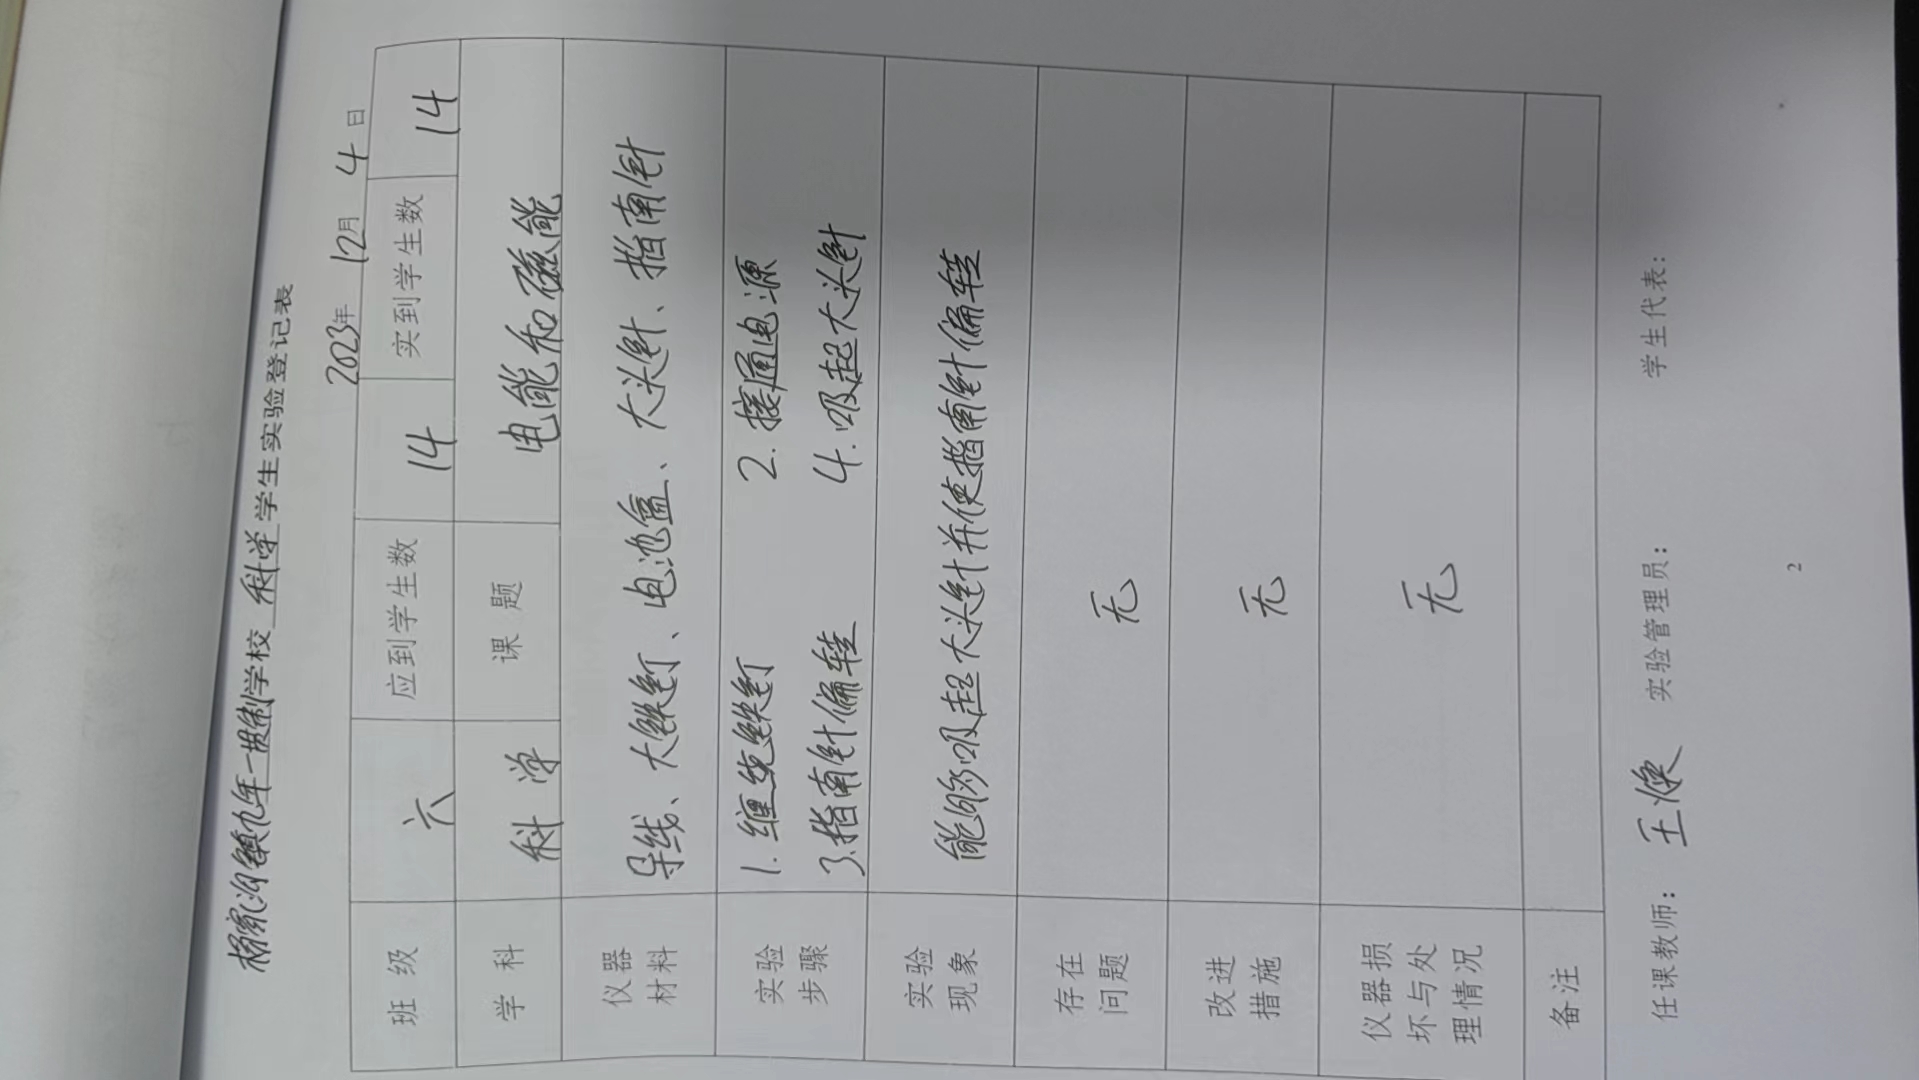 杨家沟镇九年一贯制学校 科学 学生实验登记表
2023年 12月 4日
班 级 六 应到学生数 14 实到学生数 14
学 科 科 学 课 题 电能和磁能
仪器材料 导线、大铁钉、电池盒、大头针、指南针
实验步骤 1. 缠绕铁钉 2. 接通电源
3. 指南针偏转 4. 吸起大头针
实验现象 能够吸起大头针并使指南针偏转
存在问题 无
改进措施 无
仪器损坏与处理情况 无
备注
任课教师： 王焕 实验管理员： 学生代表：
2